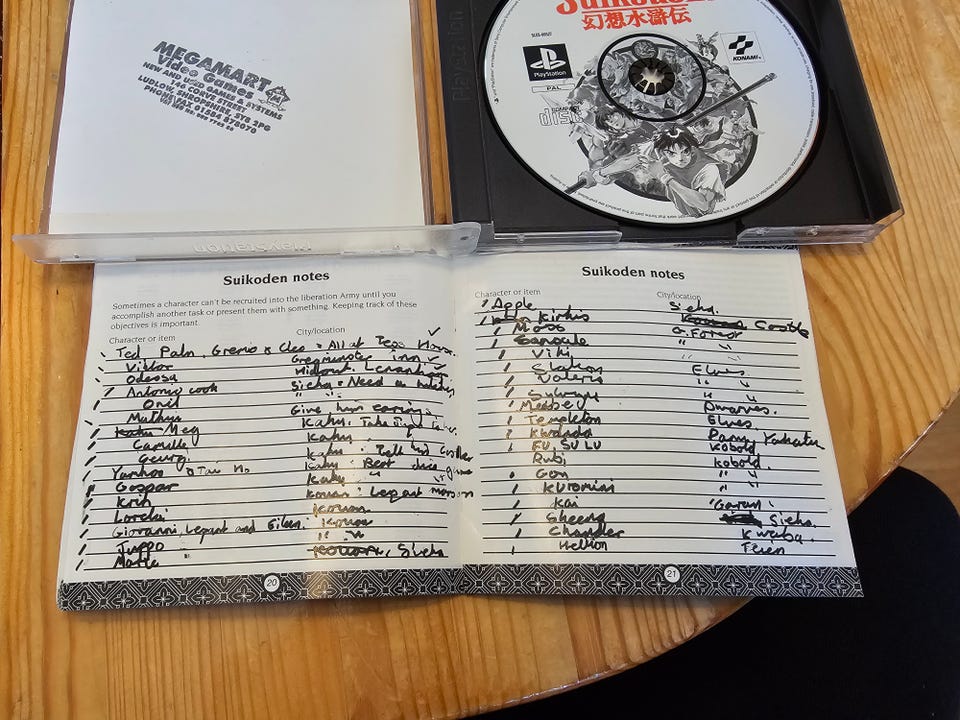 MEGAMART
Video Games
NEW AND USED GAMES & SYSTEMS
146 CORVE STREET,
LUDLOW, SHROPSHIRE, SY8 2PG
PHONE/FAX 01584 878070
SLES-00527
幻想水滸伝
PlayStation
PAL
KONAMI
COMPACT
disc
PlayStation
Suikoden notes
Sometimes a character can't be recruited into the liberation Army until you
accomplish another task or present them with something. Keeping track of these
objectives is important.
Character or item City/location
Ted Pahn, Gremio & Cleo = All at Teos House.
Viktor Gregminster inn
Odessa Hideout. Lenankamp
Antonio cook Sieka = Need in kitchen
Onil " "
Mathiu Give him earings.
Meg Kaku.
Camille Kaku.
Georg. Kaku. Talk
Yamkoo & Tai Ho Kaku. Best dice game
Gaspar Kaku "
Krin Kouan: Lepant mansion
Lorelai Kouan
Giovanni, Lepant and Eileen. Kouan
Juppo " in
Maria " Kouan, Sieka
20
Suikoden notes
Character or item City/location
Apple Sieka.
Kirkis Castle
Moss G. Forest
Sansuke " "
Viki
Stallion Elves.
Valeria " "
Sylvina " "
Meese Dwarves.
Templeton Elves.
Kwanda Pannu Yakuta
FU SU LU Kobold
Rubi Kobold.
Gon " "
Kuromimi " "
Kai Garan
Sheena Sieka.
Chandler Kwaba.
Hellion Teien
21